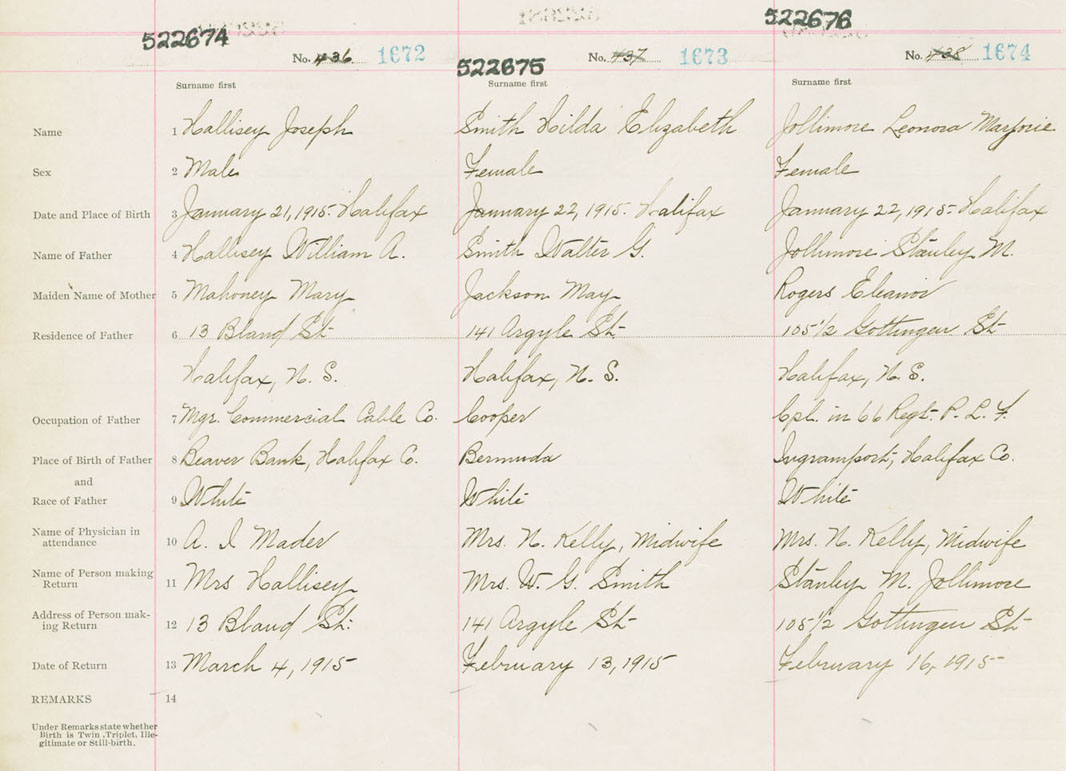 522674 522676
No. 436. 1672 No. 437 1673 No. 438 1674
522675
Surname first Surname first Surname first
Name 1 Hallisey Joseph Smith Hilda Elizabeth Jollimore Leonora Marjorie
Sex 2 Male Female Female
Date and Place of Birth 3 January 21, 1915. Halifax January 22, 1915. Halifax January 22, 1915. Halifax
Name of Father 4 Hallisey William A. Smith Walter G. Jollimore Stanley M.
Maiden Name of Mother 5 Mahoney Mary Jackson May Rogers Eleanor
Residence of Father 6 13 Bland St 141 Argyle St 105 1/2 Gottingen St
Halifax, N. S. Halifax, N. S. Halifax, N. S.
Occupation of Father 7 Mgr. Commercial Cable Co. Cooper Cpl. in 66 Regt. P. L. F.
Place of Birth of Father 8 Beaver Bank, Halifax Co. Bermuda Ingramport, Halifax Co.
and
Race of Father 9 White White White
Name of Physician in
attendance 10 A. I Mader Mrs. N. Kelly, Midwife Mrs. N. Kelly, Midwife
Name of Person making
Return 11 Mrs Hallisey Mrs. W. G. Smith Stanley M. Jollimore
Address of Person mak-
ing Return 12 13 Bland St. 141 Argyle St 105 1/2 Gottingen St
Date of Return 13 March 4, 1915 February 13, 1915 February 16, 1915
REMARKS 14
Under Remarks state whether
Birth is Twin, Triplet, Ille-
gitimate or Still-birth.